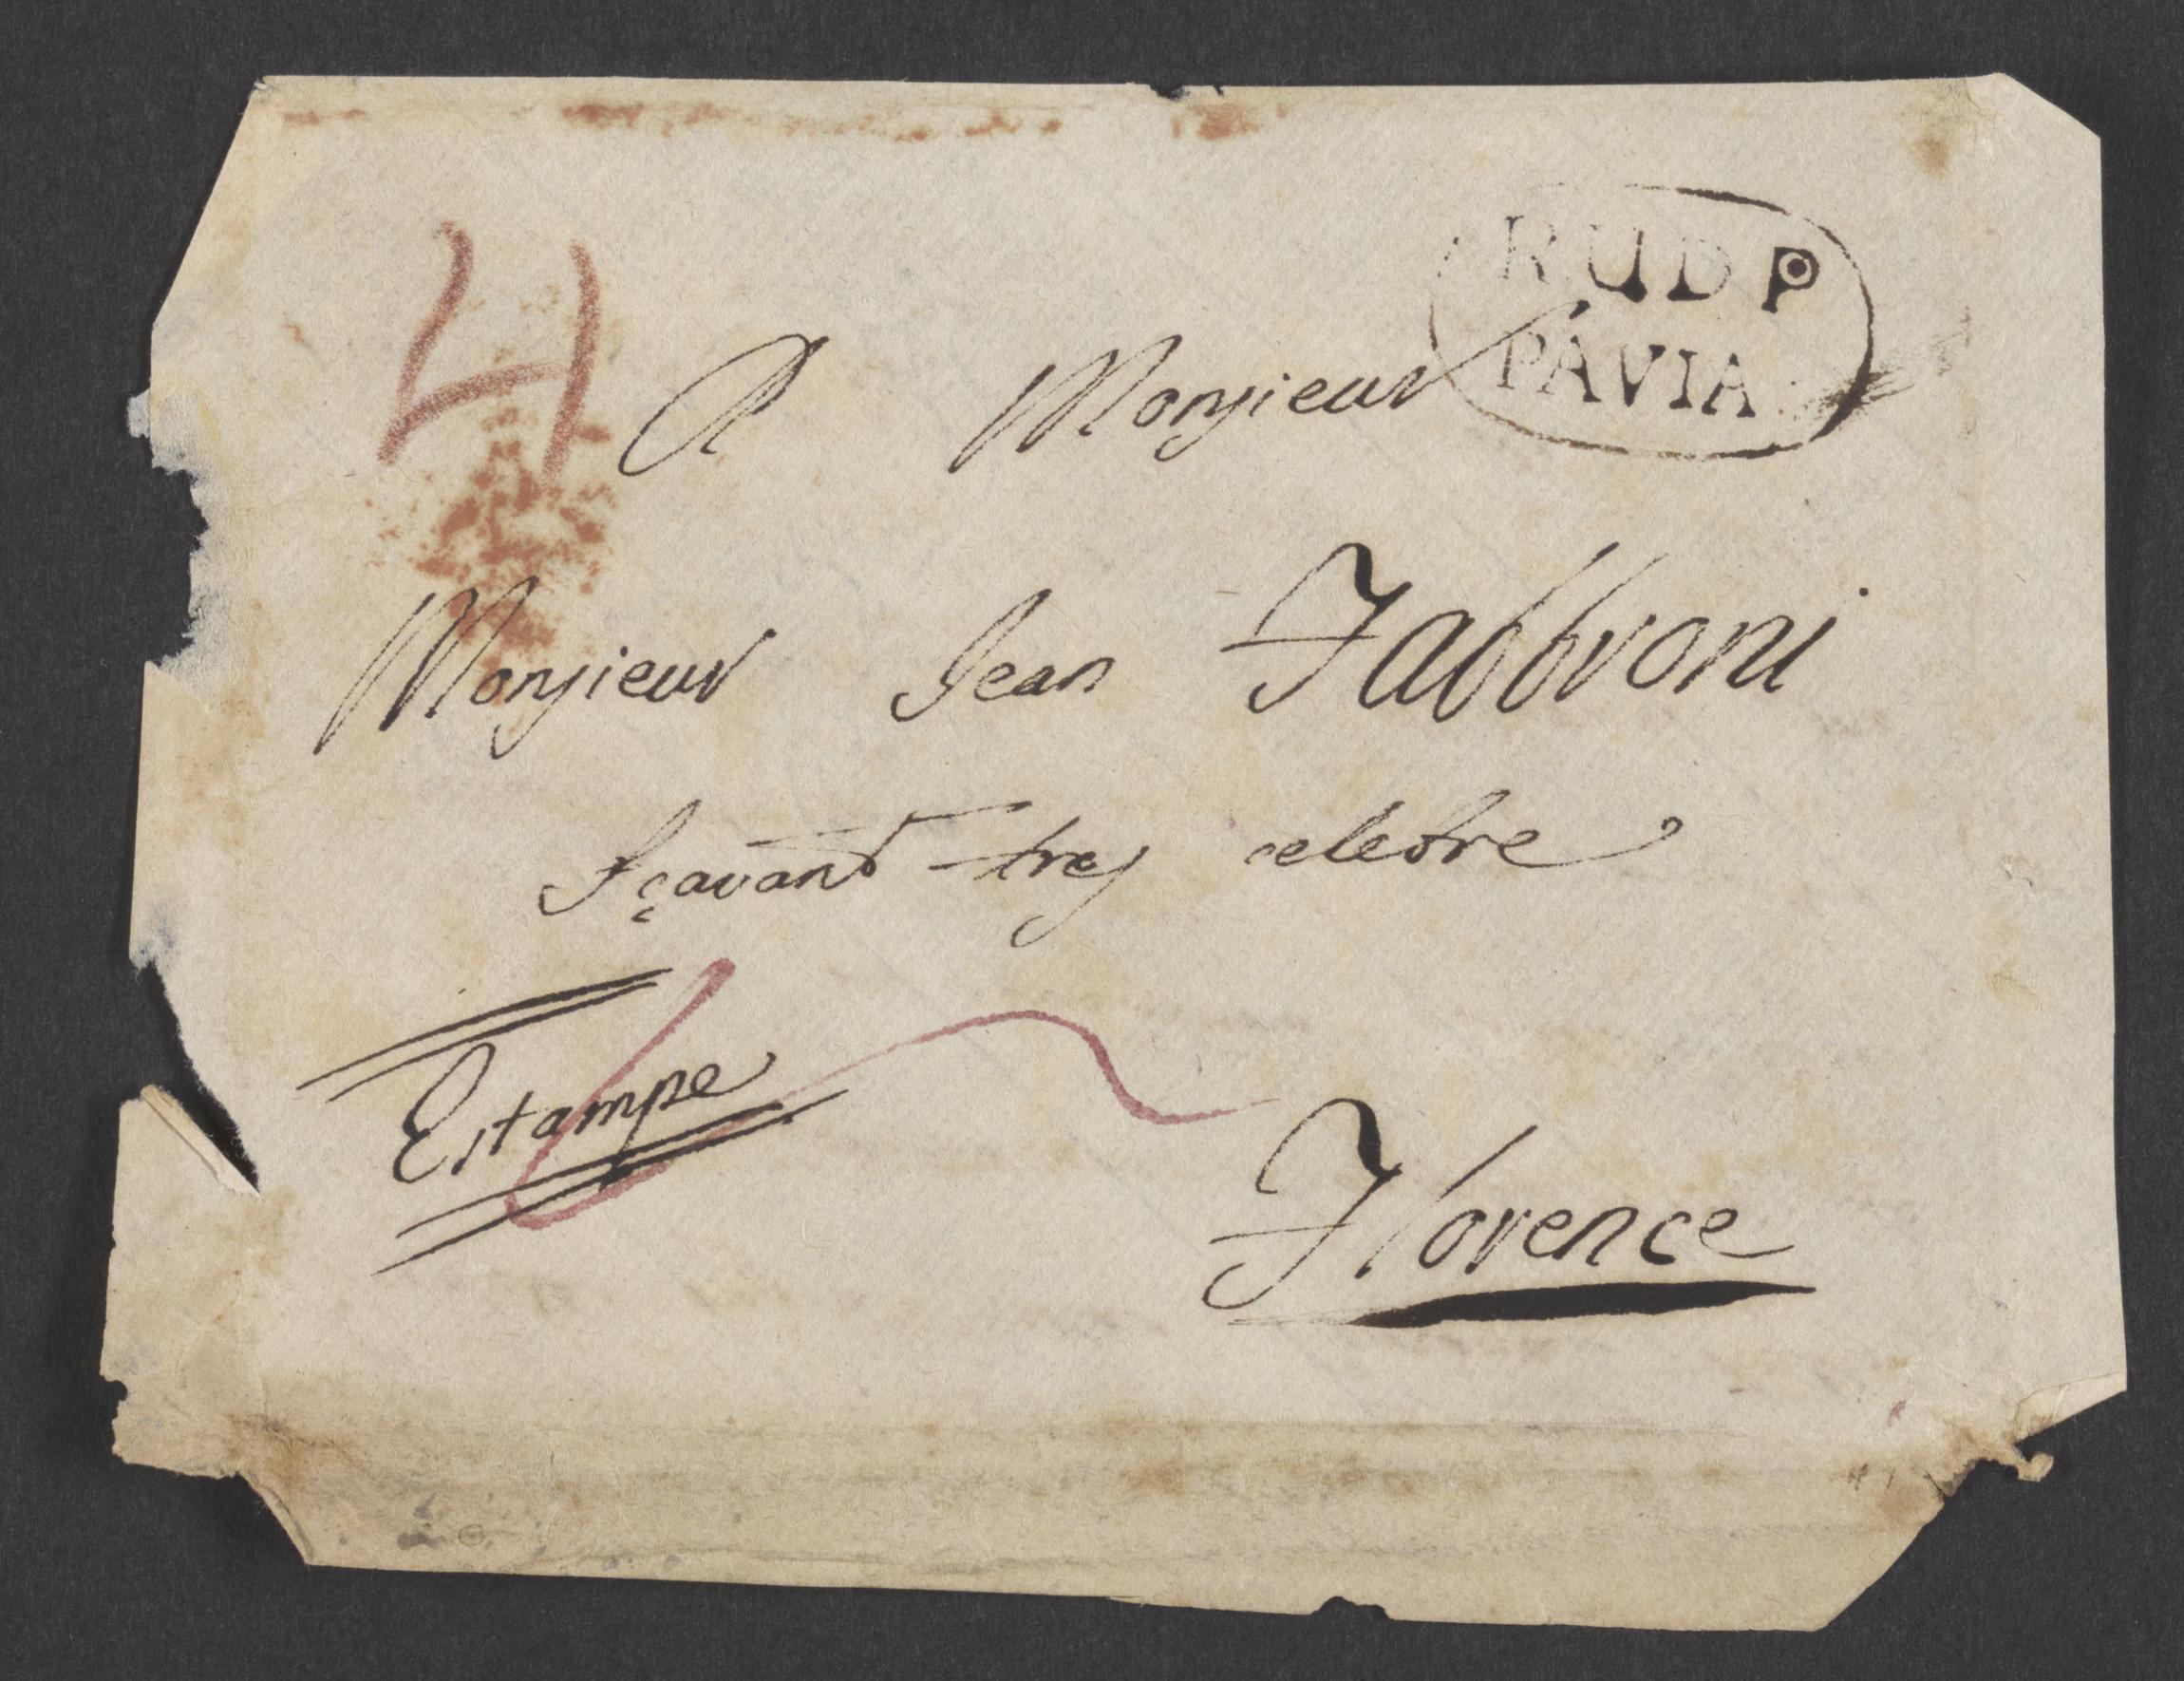 RUDP
PAVIA
4
A Monsieur
Monsieur Jean Fabbroni
Sçavant tres celebre
Estampe
Florence